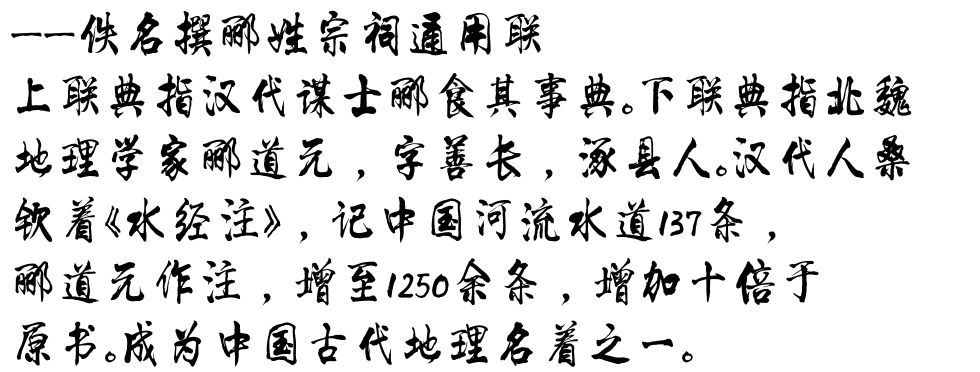 ——佚名撰郦姓宗祠通用联
上联典指汉代谋士郦食其事典。下联典指北魏
地理学家郦道元，字善长，涿县人。汉代人桑
钦着《水经注》，记中国河流水道137条，
郦道元作注，增至1250余条，增加十倍于
原书。成为中国古代地理名着之一。